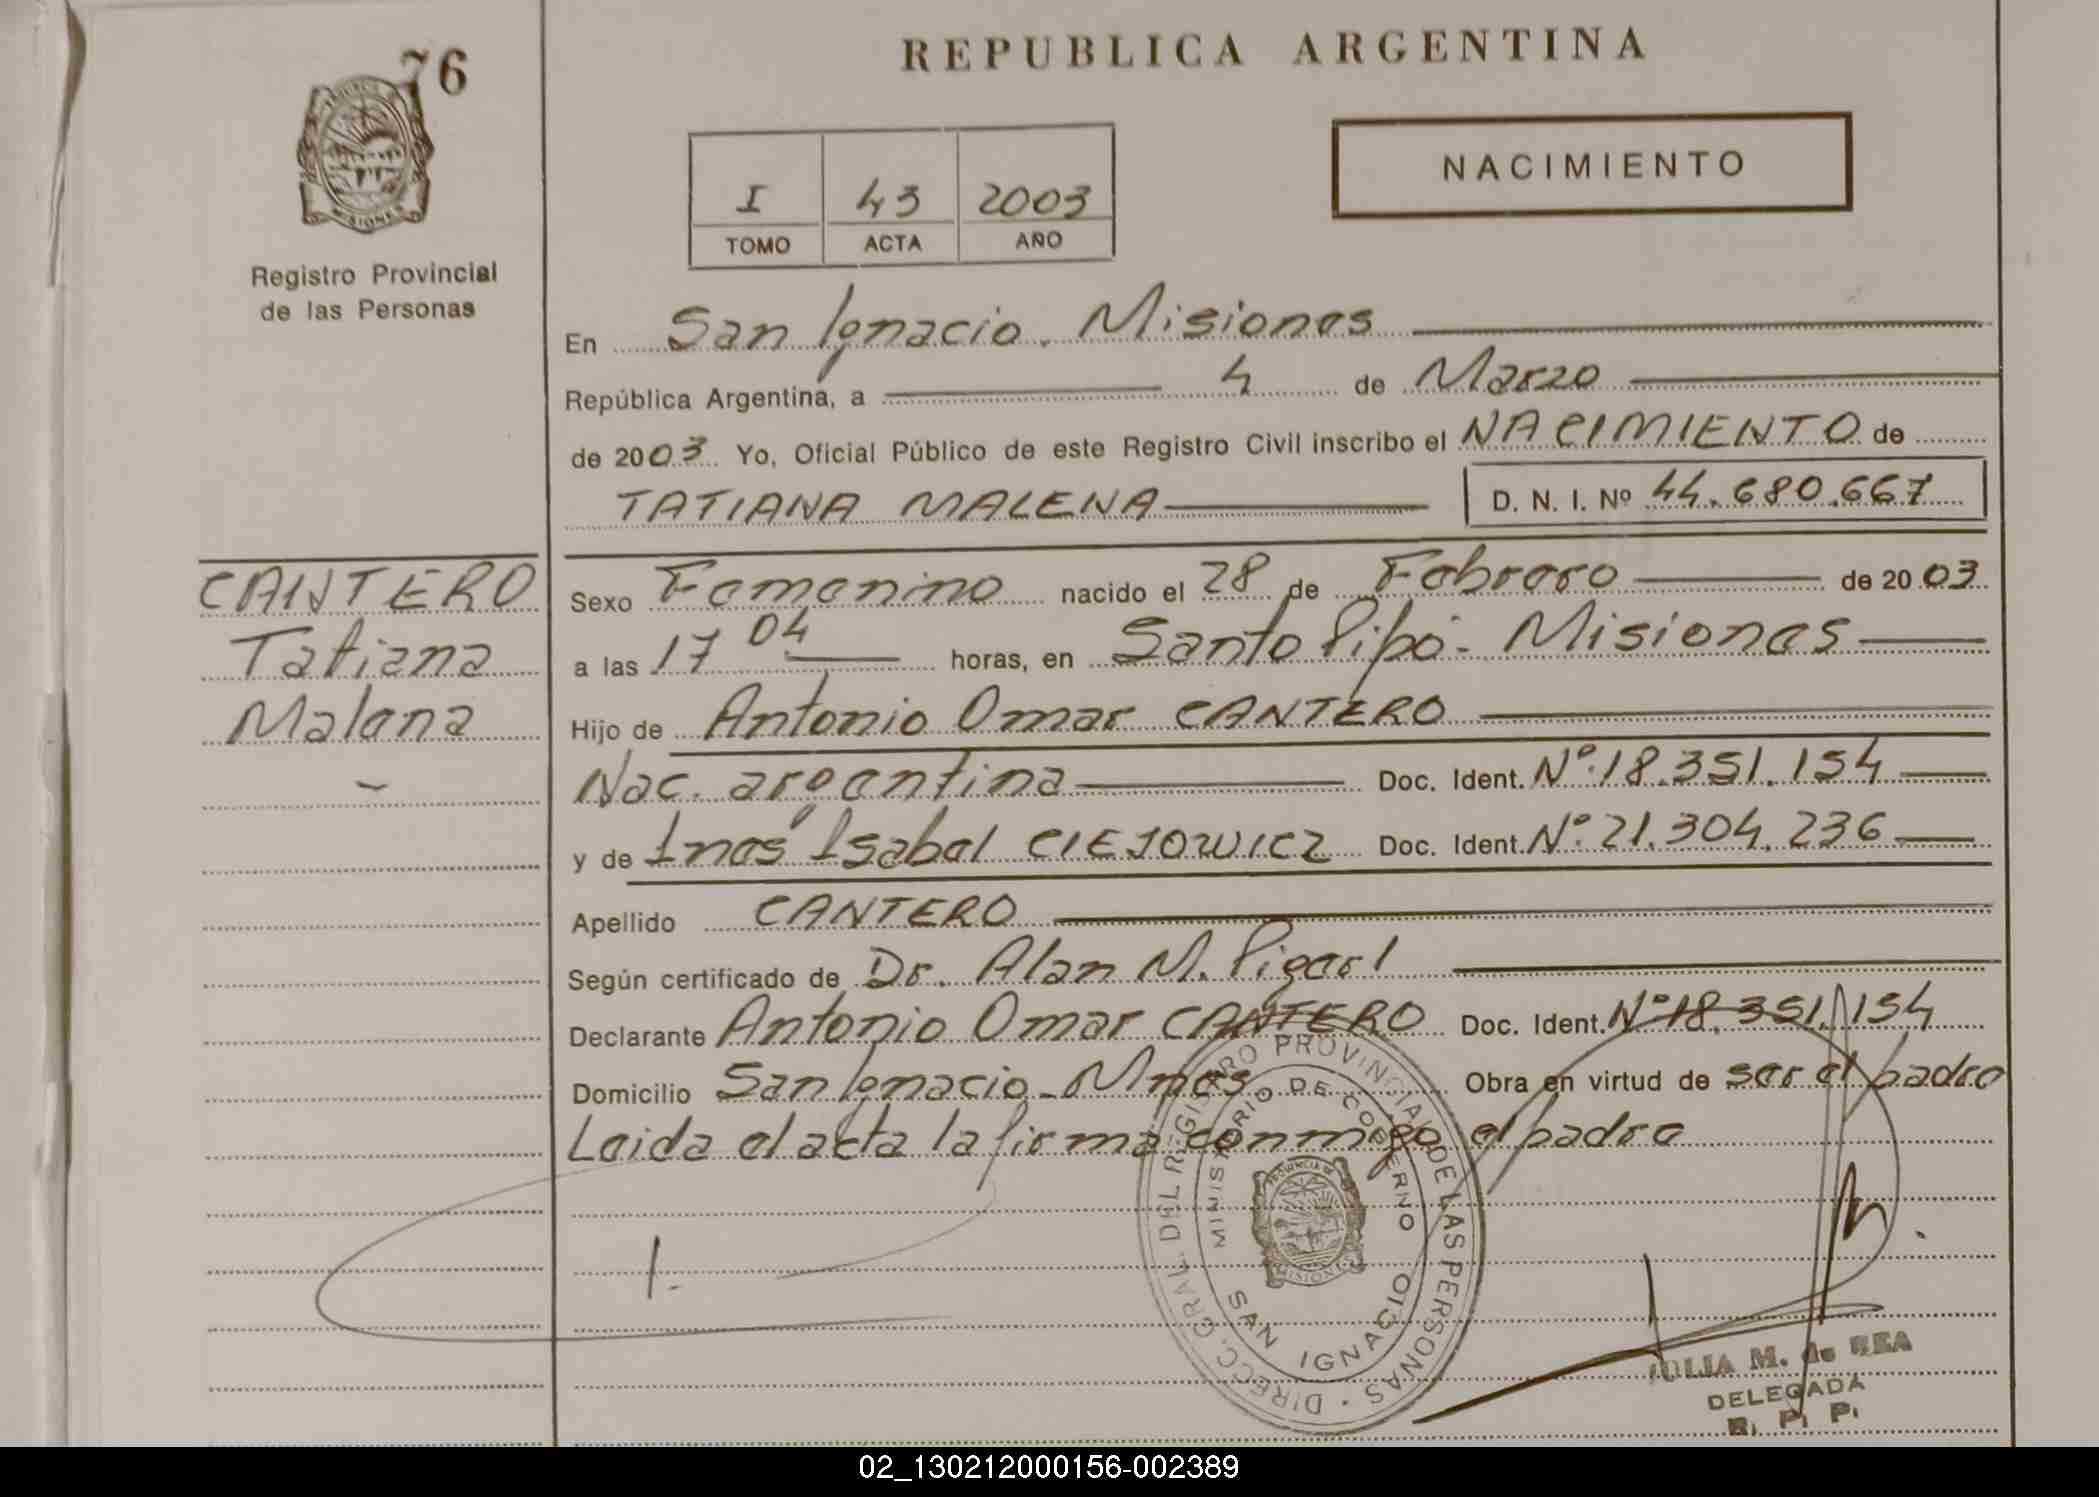 76
REPUBLICA ARGENTINA
NACIMIENTO
I 43 2003
TOMO ACTA AÑO
MISIONES
Registro Provincial
de las Personas
En San Ignacio. Misiones
República Argentina, a 4 de Marzo
de 2003 Yo, Oficial Público de este Registro Civil inscribo el NACIMIENTO de
TATIANA MALENA D. N. I. Nº 44.680.667
CANTERO
Tatiana
Malena
Sexo Femenino nacido el 28 de Febrero de 2003
a las 17 04 horas, en Santo Pipó - Misiones
Hijo de Antonio Omar CANTERO
Nac. argentina Doc. Ident. Nº 18.351.154
y de Inés Isabel CIEJOWICZ Doc. Ident. Nº 21.304.236
Apellido CANTERO
Según certificado de Dr. Alan M.
Declarante Antonio Omar CANTERO Doc. Ident. Nº 18.351.154
Domicilio San Ignacio - Mnes Obra en virtud de ser el padre
Leida el acta la firma conmigo el padre
DIRECC. GRAL. DEL REGISTRO PROVINCIAL DE LAS PERSONAS
MINISTERIO DE GOBIERNO
PROVINCIA DE
MISIONES
SAN IGNACIO
JULIA M. de REA
DELEGADA
R. P. P.
02_130212000156-002389